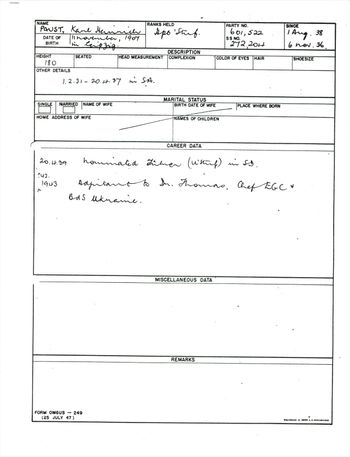 NAME RANKS HELD PARTY NO. SINCE
PAUST, Karl Heinrich 601,522 1 Aug. 38
DATE OF BIRTH 11 November, 1909 in Leipzig SS NO. 272,204 6 Nov 36
DESCRIPTION
HEIGHT SEATED HEAD MEASUREMENT COMPLEXION COLOR OF EYES HAIR SHOESIZE
180
OTHER DETAILS
1.2.31 - 20.4.37 in SA.
MARITAL STATUS
SINGLE MARRIED NAME OF WIFE BIRTH DATE OF WIFE PLACE WHERE BORN
HOME ADDRESS OF WIFE NAMES OF CHILDREN
CAREER DATA
20.4.39 nominated in SD.
1943 Adjutant to Dr. Thomas, Chef EGC +
BdS Ukraine.
MISCELLANEOUS DATA
REMARKS
FORM OMGUS — 249
(25 JULY 47)